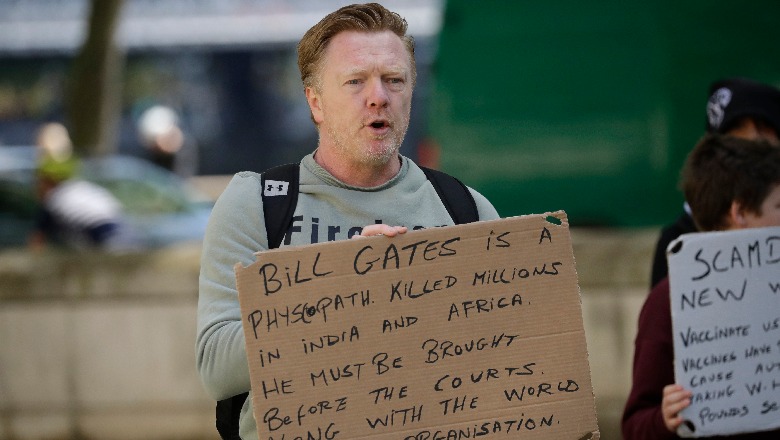 BILL GATES IS A
PHYSCOPATH. KILLED MILLIONS
IN INDIA AND AFRICA.
HE MUST BE BROUGHT
BEFORE THE COURTS.
ALONG WITH THE WORLD
ORGANISATION.
SCAMD
NEW W
VACCINATE US
VACCINES HAVE
CAUSE AUT
MAKING W.
POUNDS S